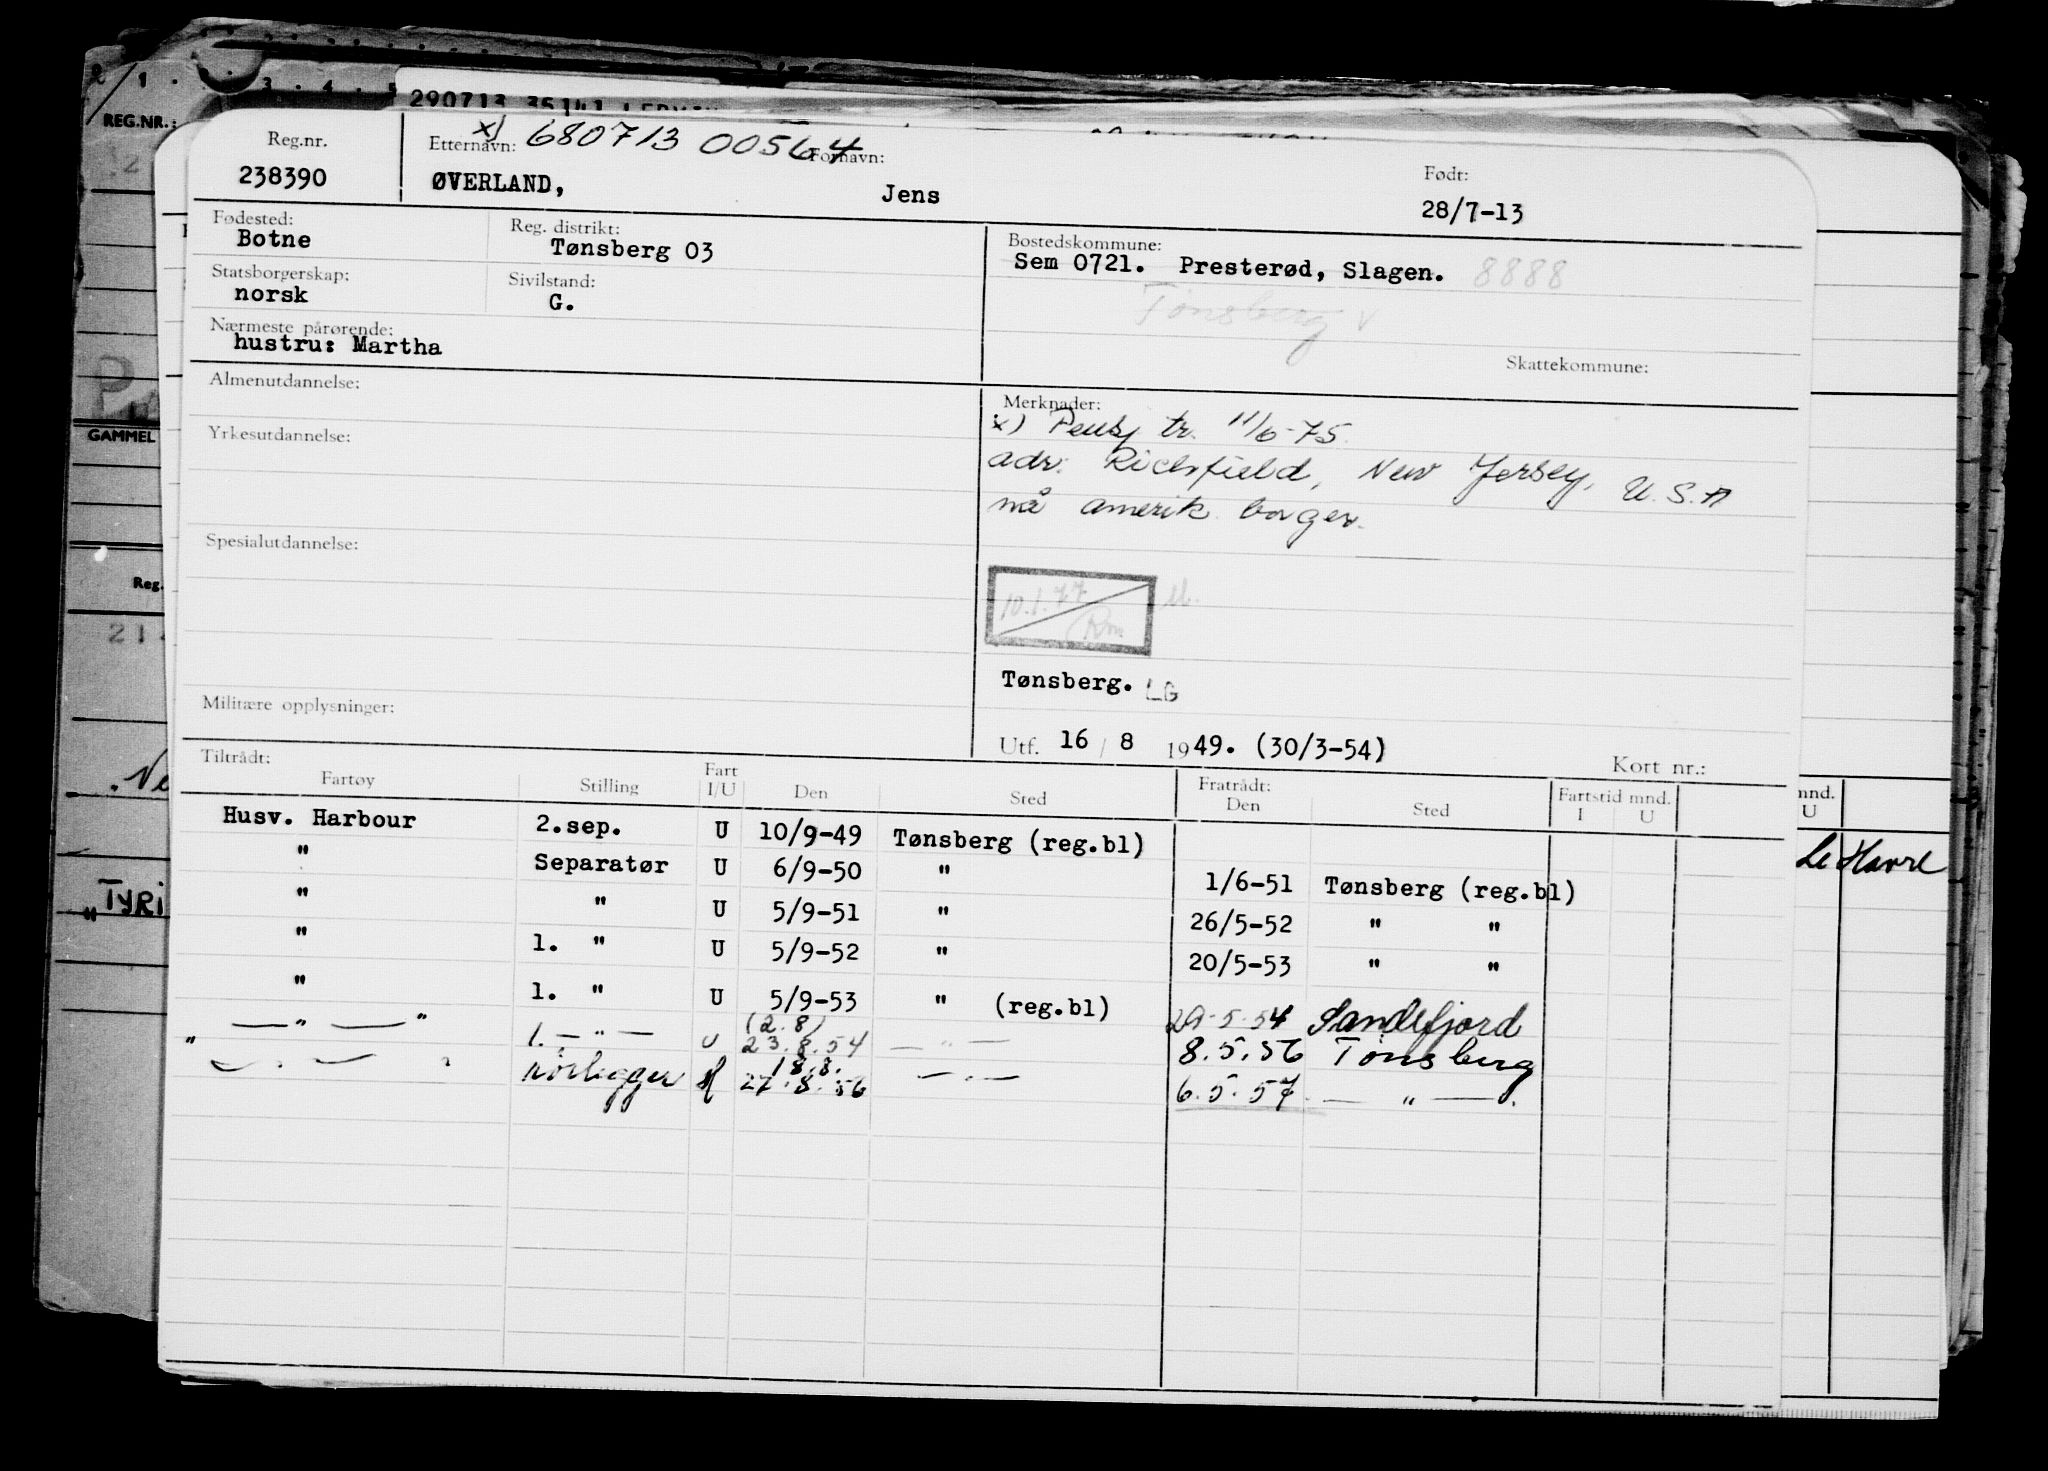 2 / 1 . . 3 . 4 . 5
REG.NR.:
290713 35141
GAMMEL
Reg.
21
Ne
"TYRI
Reg.nr. Etternavn: x) 680713 00564 Fornavn: Født:
238390 ØVERLAND, Jens 28/7-13
Fødested: Reg. distrikt: Bostedskommune:
Botne Tønsberg 03 Sem 0721. Presterød, Slagen. 8888
Statsborgerskap: Sivilstand: Tønsberg V
norsk G.
Nærmeste pårørende: Skattekommune:
hustru: Martha
Almenutdannelse: Merknader:
x) Pensj tr. 11/6-75.
Yrkesutdannelse: adr. Richfield, New Jersey, U.S.A
nå amerik. borger.
Spesialutdannelse:
10.1.77
Rm
Tønsberg. LG
Militære opplysninger:
Utf. 16 / 8 1949. (30/3-54) Kort nr.:
Tiltrådt: Fartøy Stilling Fart I/U Den Sted Fratrådt: Den Sted Fartstid mnd. I U
Husv. Harbour 2.sep. U 10/9-49 Tønsberg (reg.bl)
" Separatør U 6/9-50 " 1/6-51 Tønsberg (reg.bl)
" " U 5/9-51 " 26/5-52 " "
" 1. " U 5/9-52 " 20/5-53 " "
" 1. " U 5/9-53 " (reg.bl) 29.5.54 Sandefjord
(2.8)
— " — " 1. — " — U 23.8.54 — " — 8.5.56 Tønsberg
18.8.
" — . — " rørlegger 27.8.56 — " — 6.5.57. — " — .
mnd.
U
Le Havre